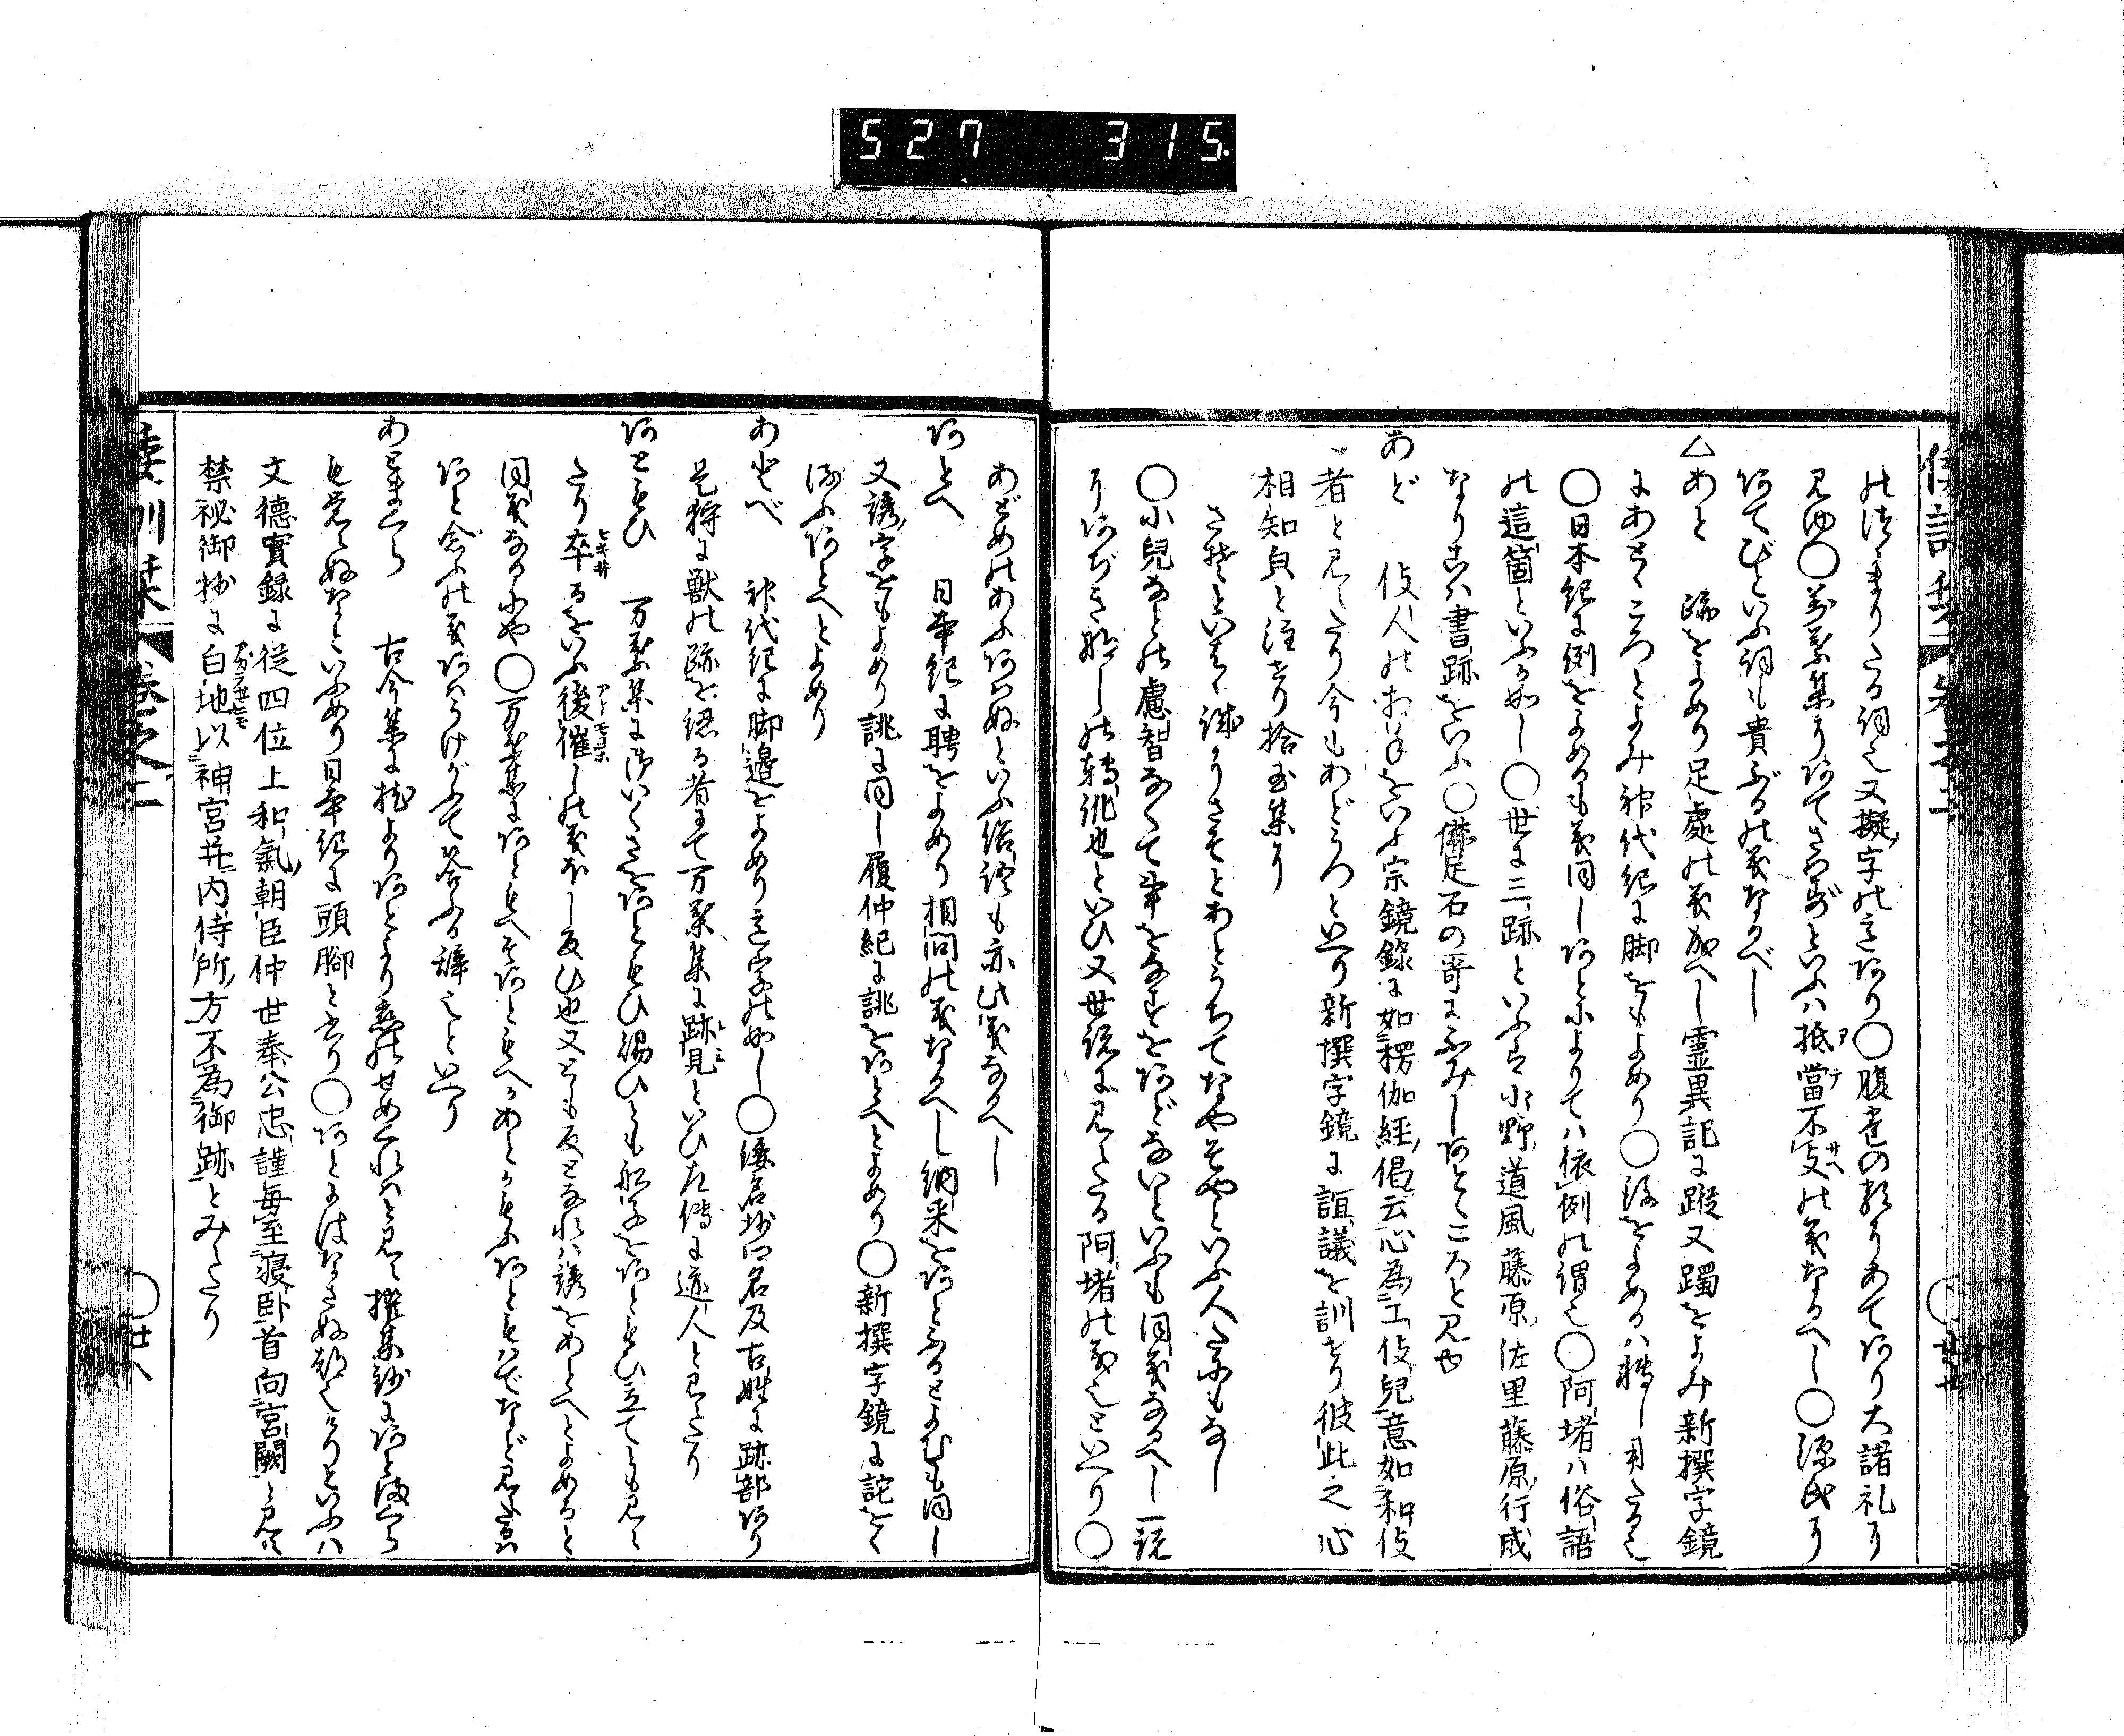 527 315.
のつゝまりたる詞也又擬字の意あり〇腹立の類にあてあり大諸礼に
見ゆ〇万葉集にあてさはずといふは抵當不支の義なるへし〇源氏に
あてびといふ詞も貴ぶるの義なるべし
△あと 跡をよめり足處の義成へし霊異記に蹤又躅をよみ新撰字鏡
にあとゝころとよみ神代紀に脚をもよめり〇後をよめるは転し用たる也
〇日本紀に例をよめるも義同しあとによりては依例の謂也〇阿堵は俗語
の這箇といふか如し〇世に三跡といふは小野道風藤原佐里藤原行成
なり共は書跡をいふ〇佛足石の哥にふみしあとところと見ゆ
あど 伎人のおとけをいふ宗鏡錄に如楞伽経偈云心為工伎兒意如和伎
者と見えたり今もあどうつといへり新撰字鏡に誼議を訓せり彼此之心
相知皃と注せり拾玉集に
さぞといへは誠にさそとあとうちてなやそやといふ人たにもなし
〇小兒なとの慮智なくて事をなすをあどないといふも同義なるへし一説
にあぢき那しの轉訛也といひ又世説に見えたる阿堵の義也といへり〇
あどめのあふあはぬといふ俗語も亦此義なるへし
あとへ 日本紀に聘をよめり相問の義なるへし納采をあとふるとよむも同し
又誘字をもよめり誂に同し履仲紀に誂をあとへとよめり〇新撰字鏡に詫をく
るふあとへとよめり
あとべ 神代紀に脚邊をよめり意字の如し〇倭名抄に名及古姓に跡部あり
是狩に獣の跡を認る者にて万葉集に跡見といひ左傳に迹人と見えたり
あともひ 万葉集に御いくさをあともひ賜ひとも船子をあともひ立てとも見え
たり卒るをいふ後催しの義ほし反ひ也又とも反となれは誘をあとへとよめると
同義なるにや〇万葉集にあともへそあともへかあとかもふあともはでなど見えたるは
あと念ふの義あはうけがふて答ふる辞也といへり
あとまくら 古今集に枕よりあとより恋のせめくれはと見え撰集抄にあと満くら
も覚えぬなといふめり日本紀に頭脚と書り〇あとはなさぬ都也けりといふは
文德實録に從四位上和氣朝臣仲世奉公忠謹毎至寢卧首向宮闕と見え
禁祕御抄に白地以神宮并内侍所方不為御跡とみえたり
倭訓栞 卷之二 〇廿八